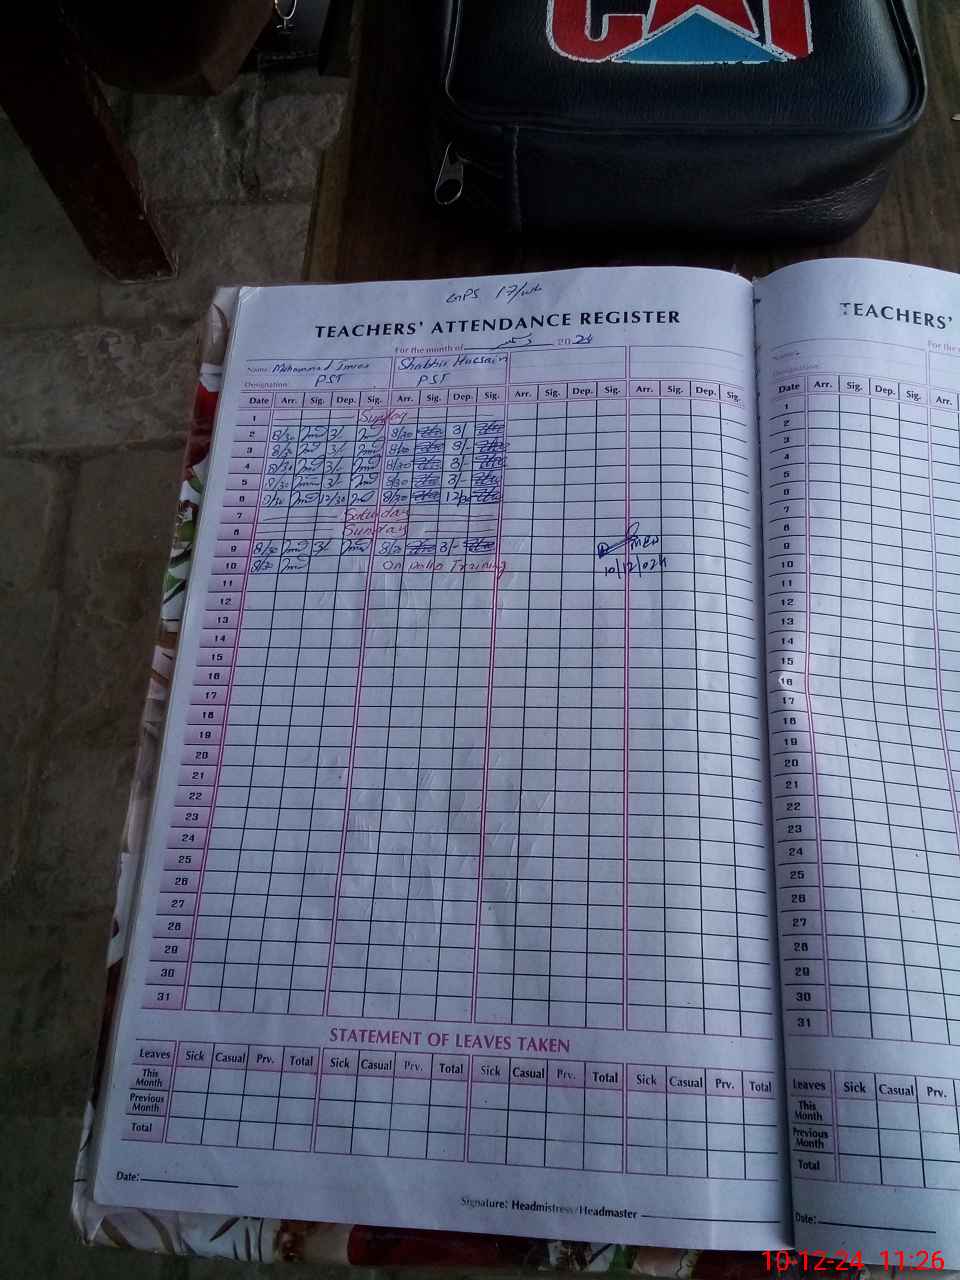 CAT
GPS 17/
TEACHERS' ATTENDANCE REGISTER
For the month of دسمبر 2024
Name: Muhammad Imran Shabbir Hussain
Designation: PST PST
Date Arr. Sig. Dep. Sig. Arr. Sig. Dep. Sig. Arr. Sig. Dep. Sig. Arr. Sig. Dep. Sig.
1 Sunday
2 8/30 3/- 8/30 3/-
3 8/30 3/- 8/30 3/-
4 8/30 3/- 8/30 3/-
5 8/30 3/- 8/30 3/-
6 8/30 12/30 8/30 12/30
7 Saturday
8 Sunday
9 8/30 3/- 8/30 3/-
10 8/30 On polio Training
10/12/024
11
12
13
14
15
16
17
18
19
20
21
22
23
24
25
26
27
28
29
30
31
STATEMENT OF LEAVES TAKEN
Leaves Sick Casual Prv. Total Sick Casual Prv. Total Sick Casual Prv. Total Sick Casual Prv. Total
This Month
Previous Month
Total
Date:
Signature: Headmistress/Headmaster
TEACHERS'
For the
Name:
Designation:
Date Arr. Sig. Dep. Sig. Arr.
1
2
3
4
5
6
7
8
9
10
11
12
13
14
15
16
17
18
19
20
21
22
23
24
25
26
27
28
29
30
31
Leaves Sick Casual Prv.
This Month
Previous Month
Total
Date:
10-12-24 11:26